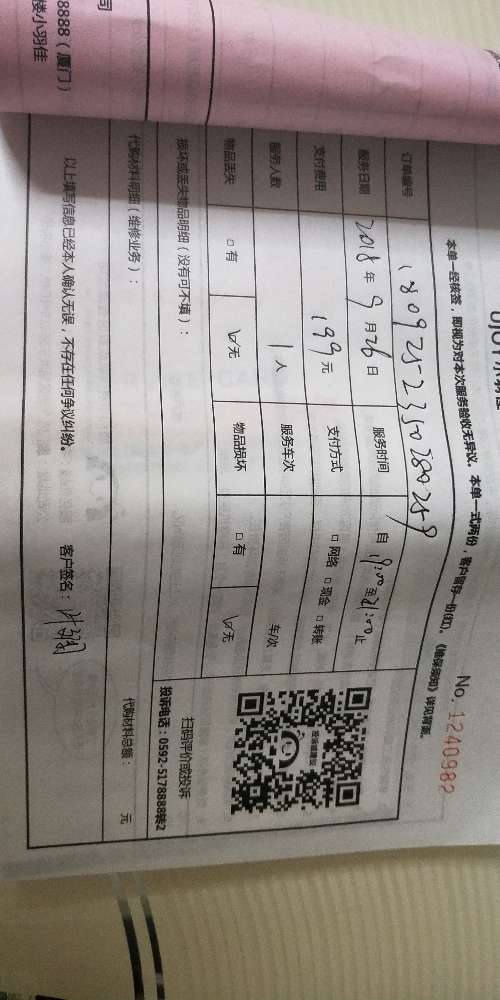 No. 1240982
本单一经核签，即视为对本次服务验收无异议。本单一式两份，客户留存一份(红)。《确保须知》详见背面。
订单编号 180925-2350280259
服务日期 2018年9月26日 服务时间 自 19:00至21:00止
支付费用 199元 支付方式 □网络 □现金 □转账
服务人数 1人 服务车次 车/次
物品丢失 □有 ☑无 物品损坏 □有 ☑无
损坏或丢失物品明细（没有可不填）：
扫码评价或投诉
投诉电话：0592-5178888转2
代购材料明细（维修业务）：
代购材料总额： 元
以上填写信息已经本人确认无误，不存在任何争议纠纷。 客户签名：
司
8888（厦门）
楼小羽佳